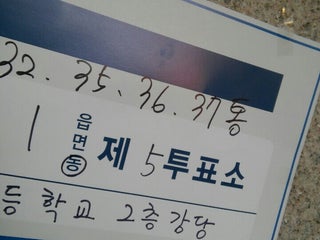 32. 35. 36. 37통
1 읍면동 제 5 투표소
등학교 2층강당